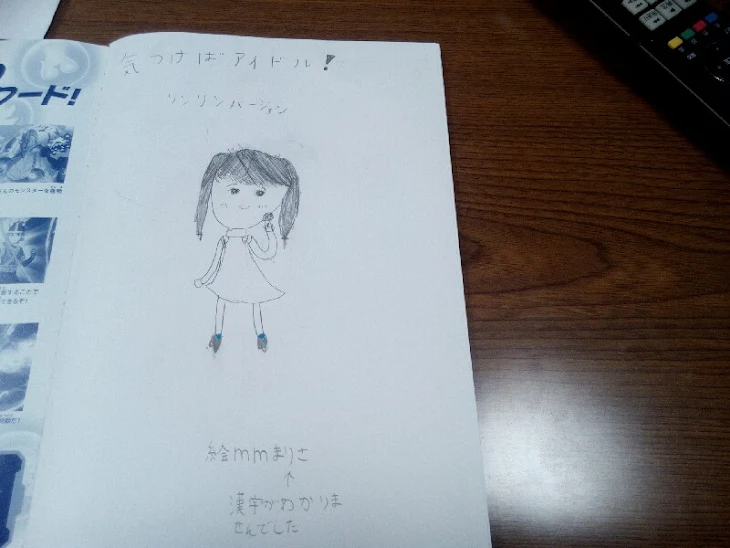 気つけばアイドル!
リンリンバージョン
絵mmまりさ
↑
漢字がわかりま
せんでした
ワード!